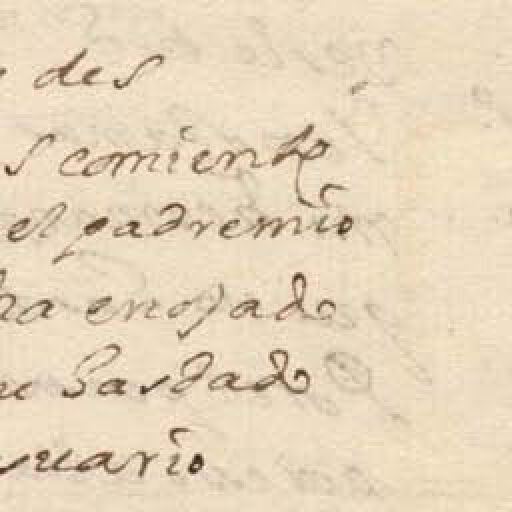 des
s comiento
el padre mio
ha enojado
bastado
suario